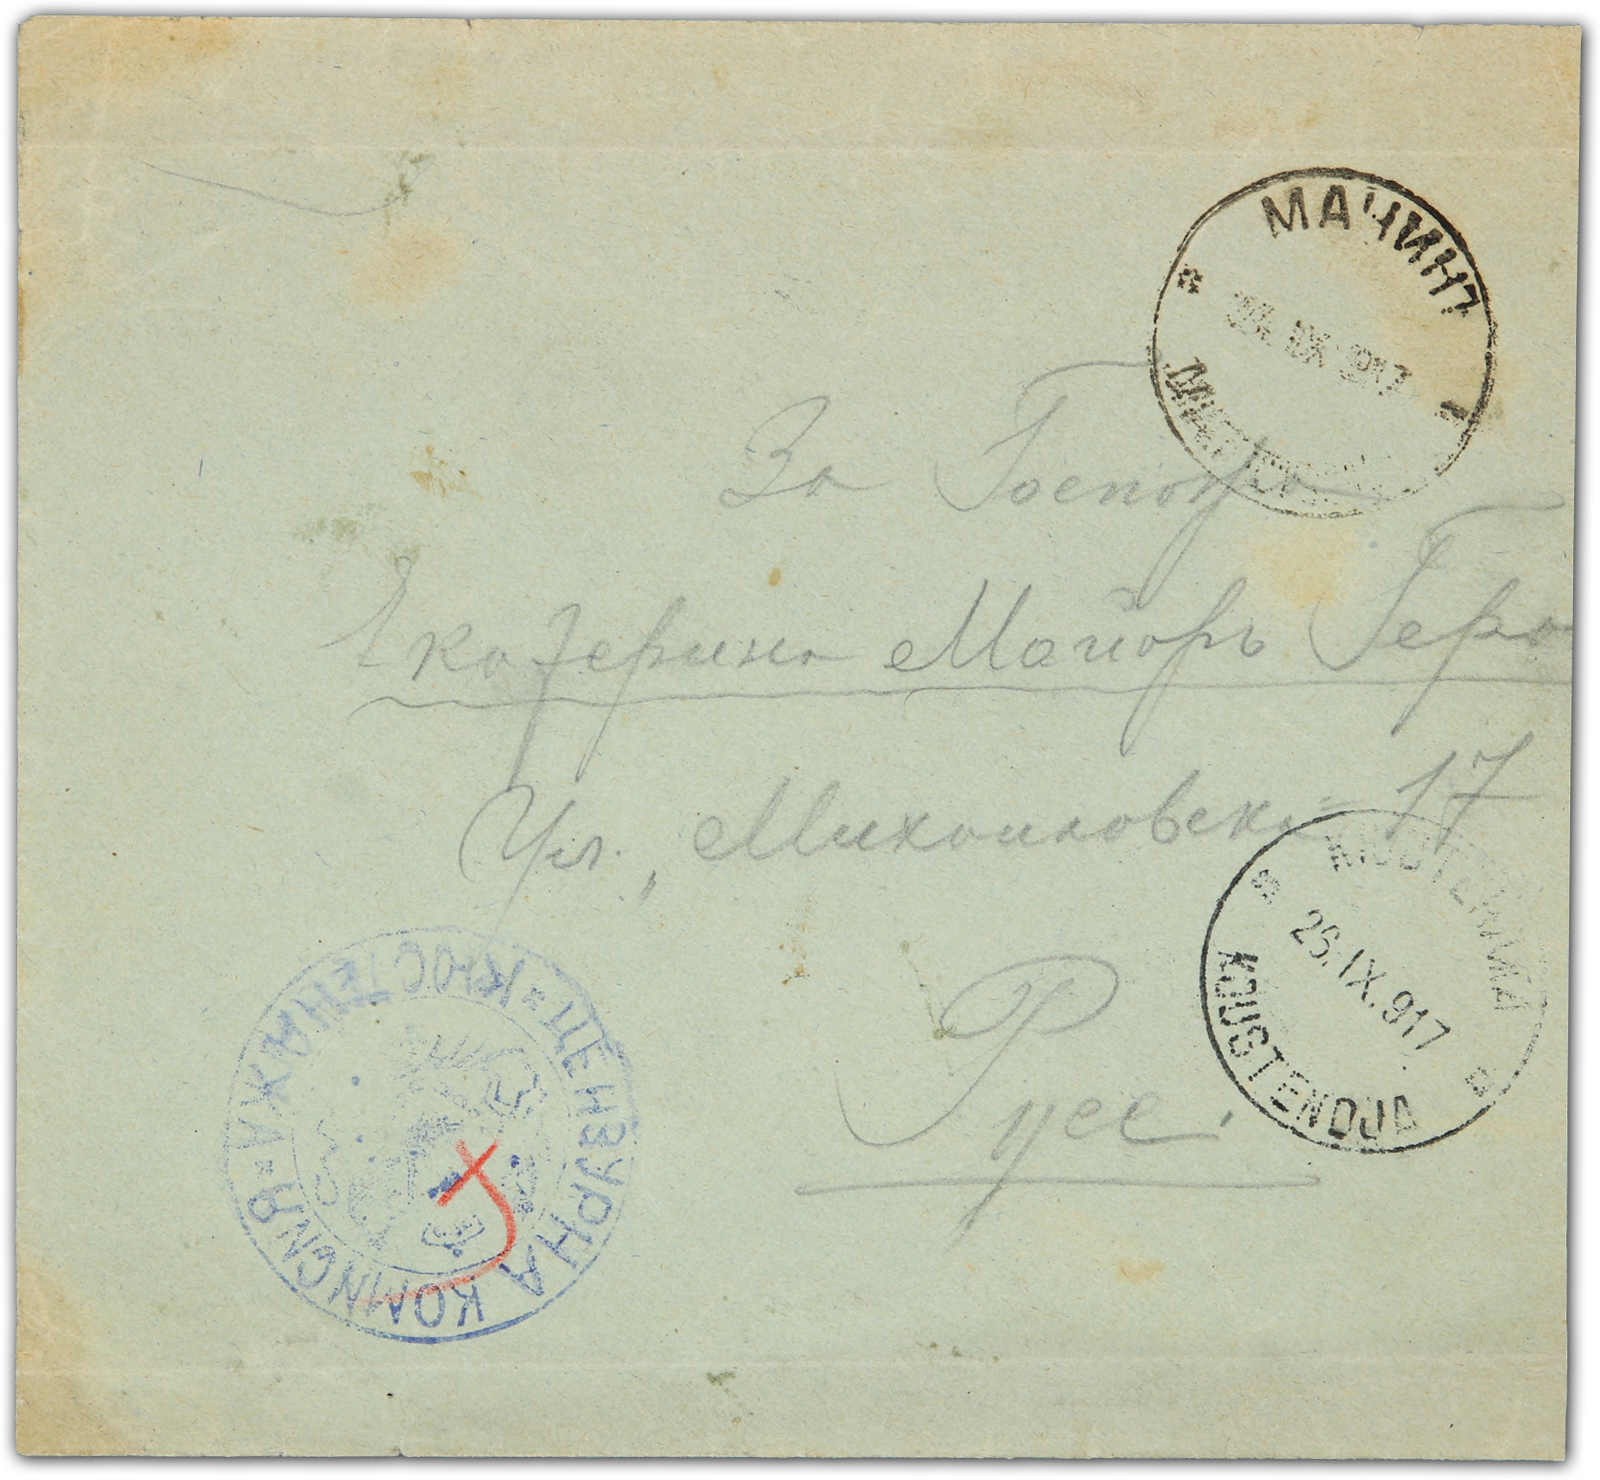 МАЧИНЪ
За Госпожа
Екатерина Майоръ Геро
Ул. „Михаиловска 17
КЮСТЕНДЖА
25.IX.917
KJUSTENDJA
Русе.
ЦЕНЗУРНА КОМИСИЯ
КЮСТЕНДЖА